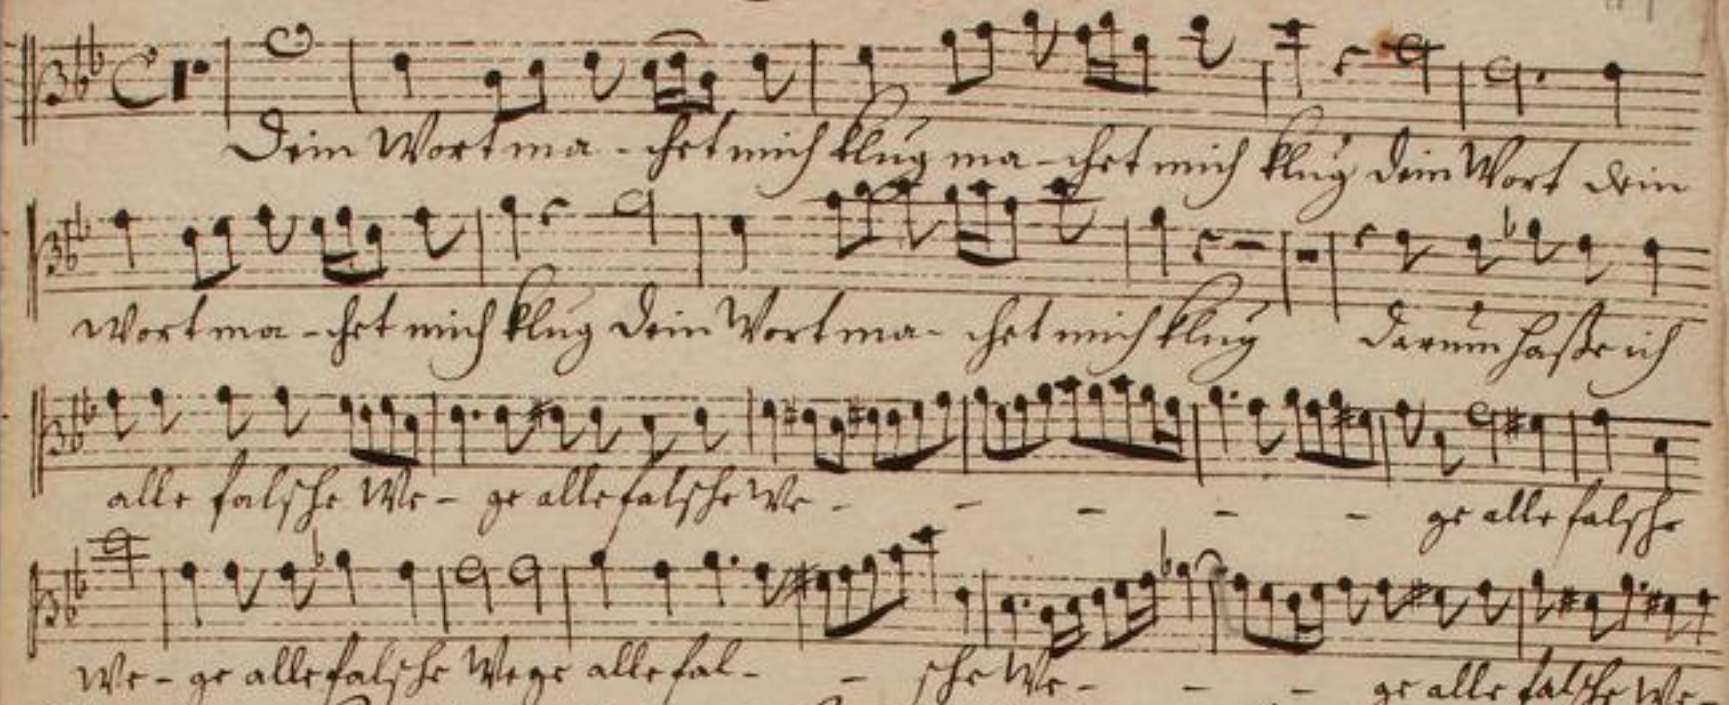 Dein Wort ma - chet mich klug ma - chet mich klug dein Wort dein
Wort ma - chet mich klug dein Wort ma - chet mich klug darum haße ich
alle falsche We - ge alle falsche We - - - - - ge alle falsche
We - ge alle falsche Wege alle fal - - sche We - - - ge alle falsche We -